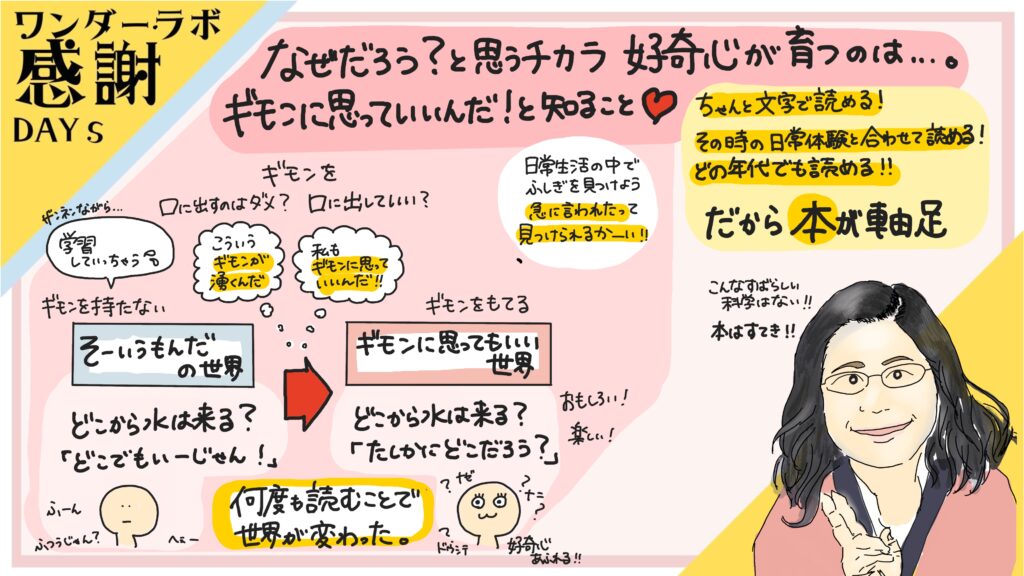 ワンダー・ラボ
感謝
DAYs
なぜだろう？と思うチカラ 好奇心が育つのは…。
ギモンに思っていいんだ！と知ること
ちゃんと文字で読める！
その時の日常体験と合わせて読める！
どの年代でも読める！！
だから本が軸足
日常生活の中で
ふしぎを見つけよう
急に言われたって
見つけられるかーい！！
ギモンを
口に出すのはダメ？ 口に出していい？
ザンネンながら…
学習
していっちゃう
こういう
ギモンが
湧くんだ
私も
ギモンに思って
いいんだ！！
ギモンを持たない
ギモンをもてる
そーいうもんだ
の世界
ギモンに思ってもいい
世界
どこから水は来る？
「どこでもいーじゃん！」
どこから水は来る？
「たしかにどこだろう？」
おもしろい！
楽しい！
こんなすばらしい
科学はない！！
本はすてき！！
ふーん
ふつうじゃん？
へぇー
何度も読むことで
世界が変わった。
？ なぜ ？
ナニ？
？
？
ドウシテ
好奇心
あふれる！！